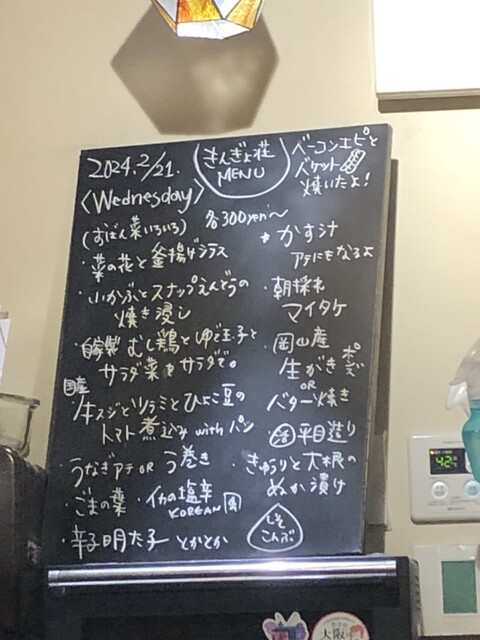 2024.2/21.
〈Wednesday〉
きんぎょ荘
MENU
ベーコンエピと
バケット
焼いたよ!
(おばん菜いろいろ)
各300yen〜
・菜の花と釜揚げシラス
・いかぶとスナップえんどうの
焼き浸し
・自家製 むし鶏とゆで玉子と
サラダ菜をサラダで。
国産
牛スジとツラミとひよこ豆の
トマト煮込み with パン
・うなぎアテ OR う巻き
・ごまの葉
・イカの塩辛
KOREAN風
・辛子明太子 とかとか
かす汁
アテにもなるよ
・朝採れ
マイタケ
・岡山産
生がき ポン酢
OR
バター焼き
・活 平目造り
・きゅうりと大根の
ぬか漬け
しそ
こんぶ
42
大阪